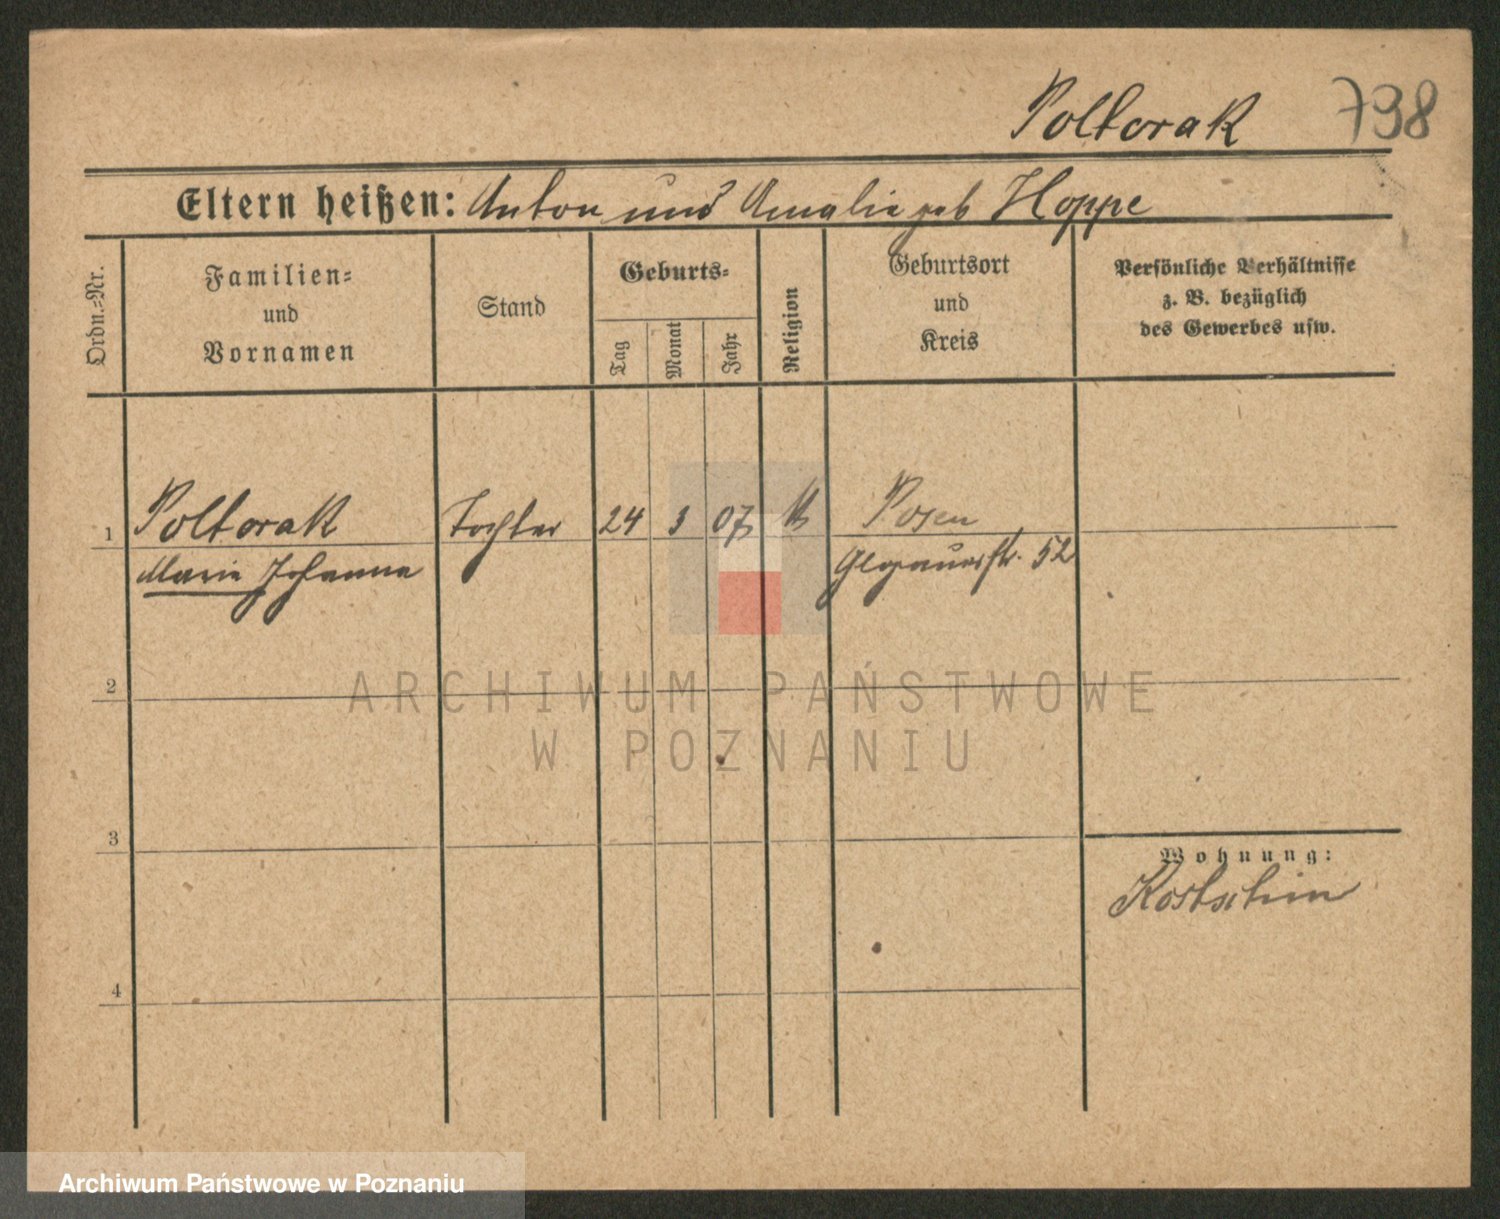 Poltorak 798
Eltern heißen: Anton und Amalie geb Hoppe
Ordn.-Nr.
Familien-
und
Vornamen
Stand
Geburts-
Tag
Monat
Jahr
Religion
Geburtsort
und
Kreis
Persönliche Verhältnisse
z. B. bezüglich
des Gewerbes usw.
1 Poltorak Tochter 24 3 07 k Posen
Marie Johanna Glogauerstr. 52
2
ARCHIWUM PAŃSTWOWE
W POZNANIU
3
Wohnung:
Kostschin
4
Archiwum Państwowe w Poznaniu